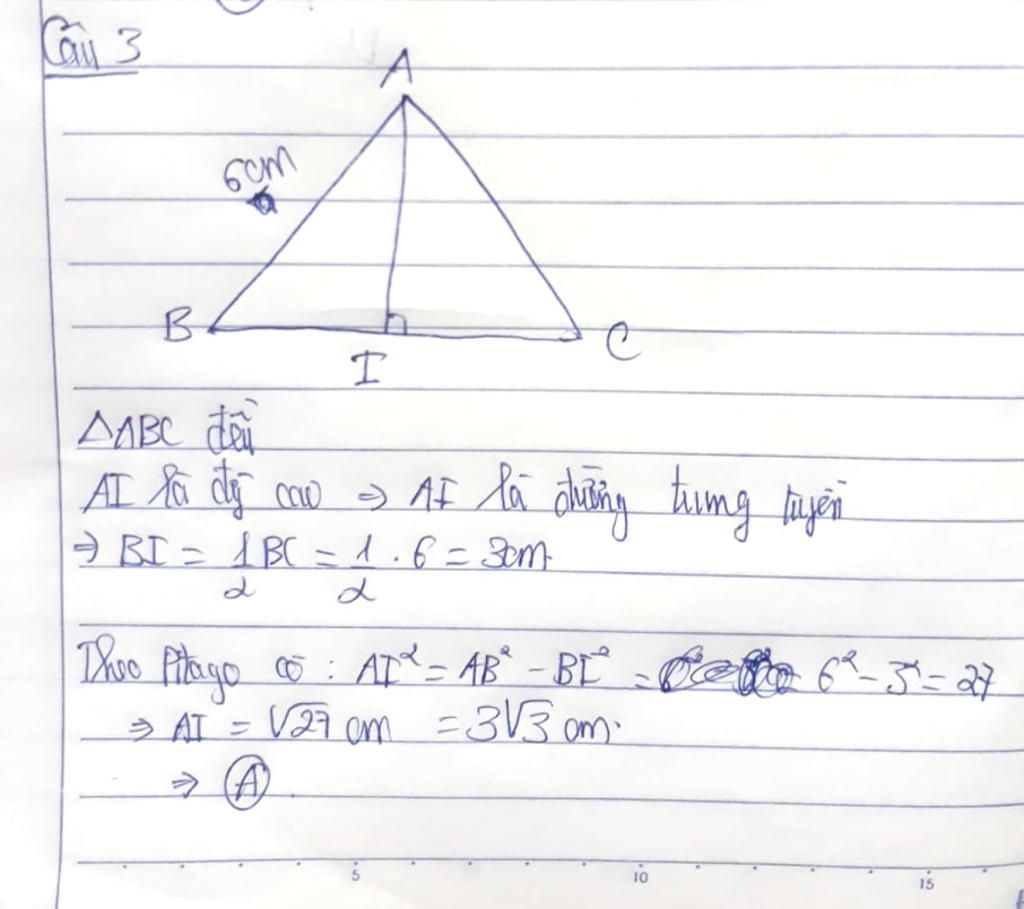 Câu 3
A
6cm
B
C
I
△ABC đều
AI là đg cao ⇒ AI là đường trung tuyến
⇒ BI = 1/2 BC = 1/2 . 6 = 3cm.
Theo Pitago có : AI² = AB² - BI² = 6² - 3² = 27
⇒ AI = √27 cm = 3√3 cm.
⇒ A .
5 10 15